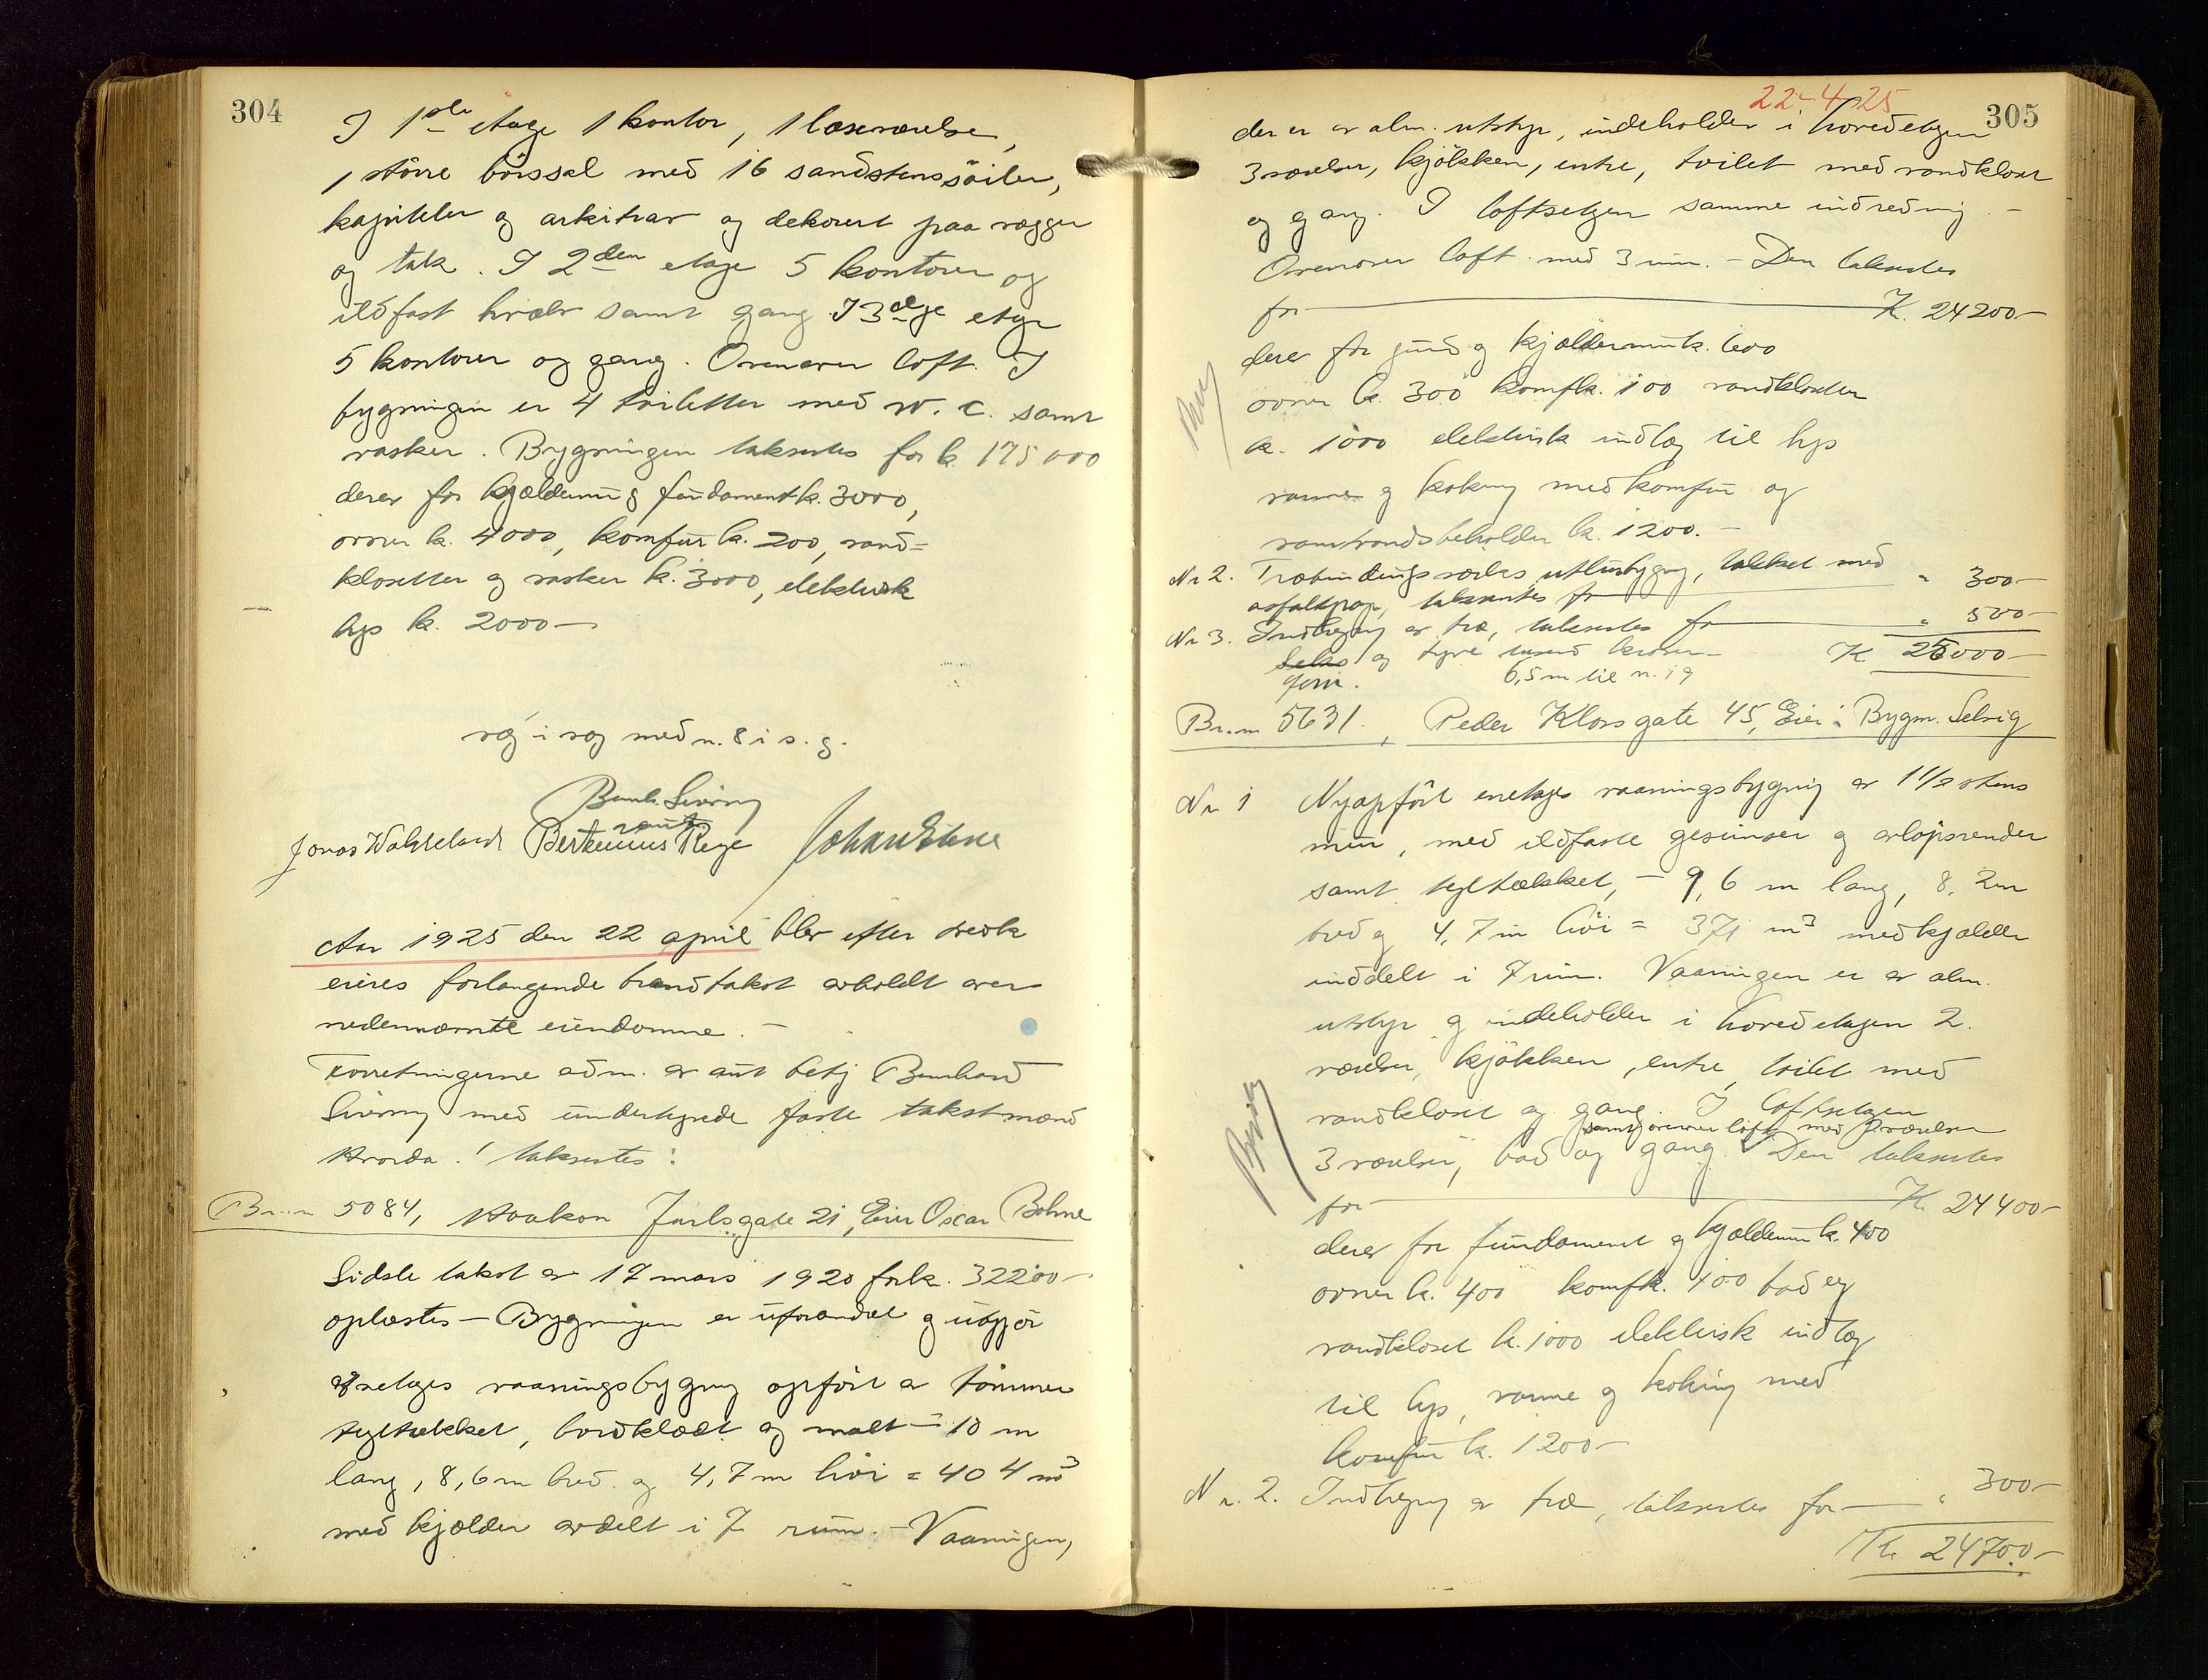 304
I 1ste etage 1 kontor, 1 læseværelse,
1 større börssal med 16 sandstenssöiler,
kapitæler og arkitrav og dekorert paa vægger
og tak. I 2den etage 5 kontorer og
ildfast hvælv samt gang. I 3dje etage
5 kontorer og gang. Ovenover loft. I
bygningen er 4 toiletter med w. c. samt
vasker. Bygningen taksertes for k. 175 000
derav for kjældermur og fundament k. 3000,
ovner k. 4000, komfur k. 200, vand=
klosetter og vasker k. 3000, elektrisk
lys k. 2000 —
væg i væg med n. 8 i s. g.
Bernh. Sivring
Jonas Wahleland Berteunus Rege Johan Eline
Aar 1925 den 22 april blev efter vedk
eieres forlangende brandtakst avholdt over
nedennævnte eiendomme. —
Forretningerne adm. av aut betj Bernhard
Sivring med undertegnede faste takstmænd
Hvorda! taksertes:
Br.nr 5084, Haakon Jarlsgate 21, Eier Oscar Bohne
Sidste takst av 17 mars 1920 for k. 32200 —
oplæstes — Bygningen er uforandret og utgjör
enetages vaaningsbygning opfört av tömmer
tegltækket, bordklædt og malt — 10 m
lang, 8,6 m bred og 4,7 m höi = 404 m³
med kjælder avdelt i 7 rum. — Vaaningen,
22-4-25
305
der er av alm. utstyr, indeholder i hovedetagen
3 værelser, kjökken, entre, toilet med vandkloset
og gang. I loftsetagen samme indredning. —
Ovenover loft med 3 rum. — Den taksertes
for — K. 24200 —
derav for grund og kjældermur k. 600
ovner k. 300 komf k. 100 vandklosetter
k. 1000 elektrisk indlæg til lys
varme og koking med komfur og
varmtvandsbeholder k. 1200. —
Nr 2. Træbindingsværks uthusbygning, tækket med
asfaltpap, taksertes for — " 300 —
Nr 3. Indhegning av træ, taksertes for — " 500 —
Seks og tyve tusend kroner — K 25000 —
fem.
6,5 m til n. 19
Br.nr 5631, Peder Klowsgate 45, Eier: Bygm. Selvig
Nr 1 Nyopfört enetages vaaningsbygning av 1 1/2 stens
mur, med ildfaste gesimser og avlöpsrender
samt tegltækket, — 9,6 m lang, 8,2 m
bred og 4,7 m höi = 371 m³ med kjælder
inddelt i 7 rum. Vaaningen er av alm.
utstyr og indeholder i hovedetagen 2
værelser, kjökken, entre, toilet med
vandkloset og gang. I loftsetagen
samt ovenover loft med værelser
3 værelser, bad og gang. Den taksertes
for — K. 24400 —
derav for fundament og kjældermur k. 400
ovner k. 400 komf k. 100 bad og
vandkloset k. 1000 elektrisk indlæg
til lys, varme og koking med
komfur k. 1200 —
Nr. 2. Indhegning av træ, taksertes for — " 300 —
Kr. 24700 —